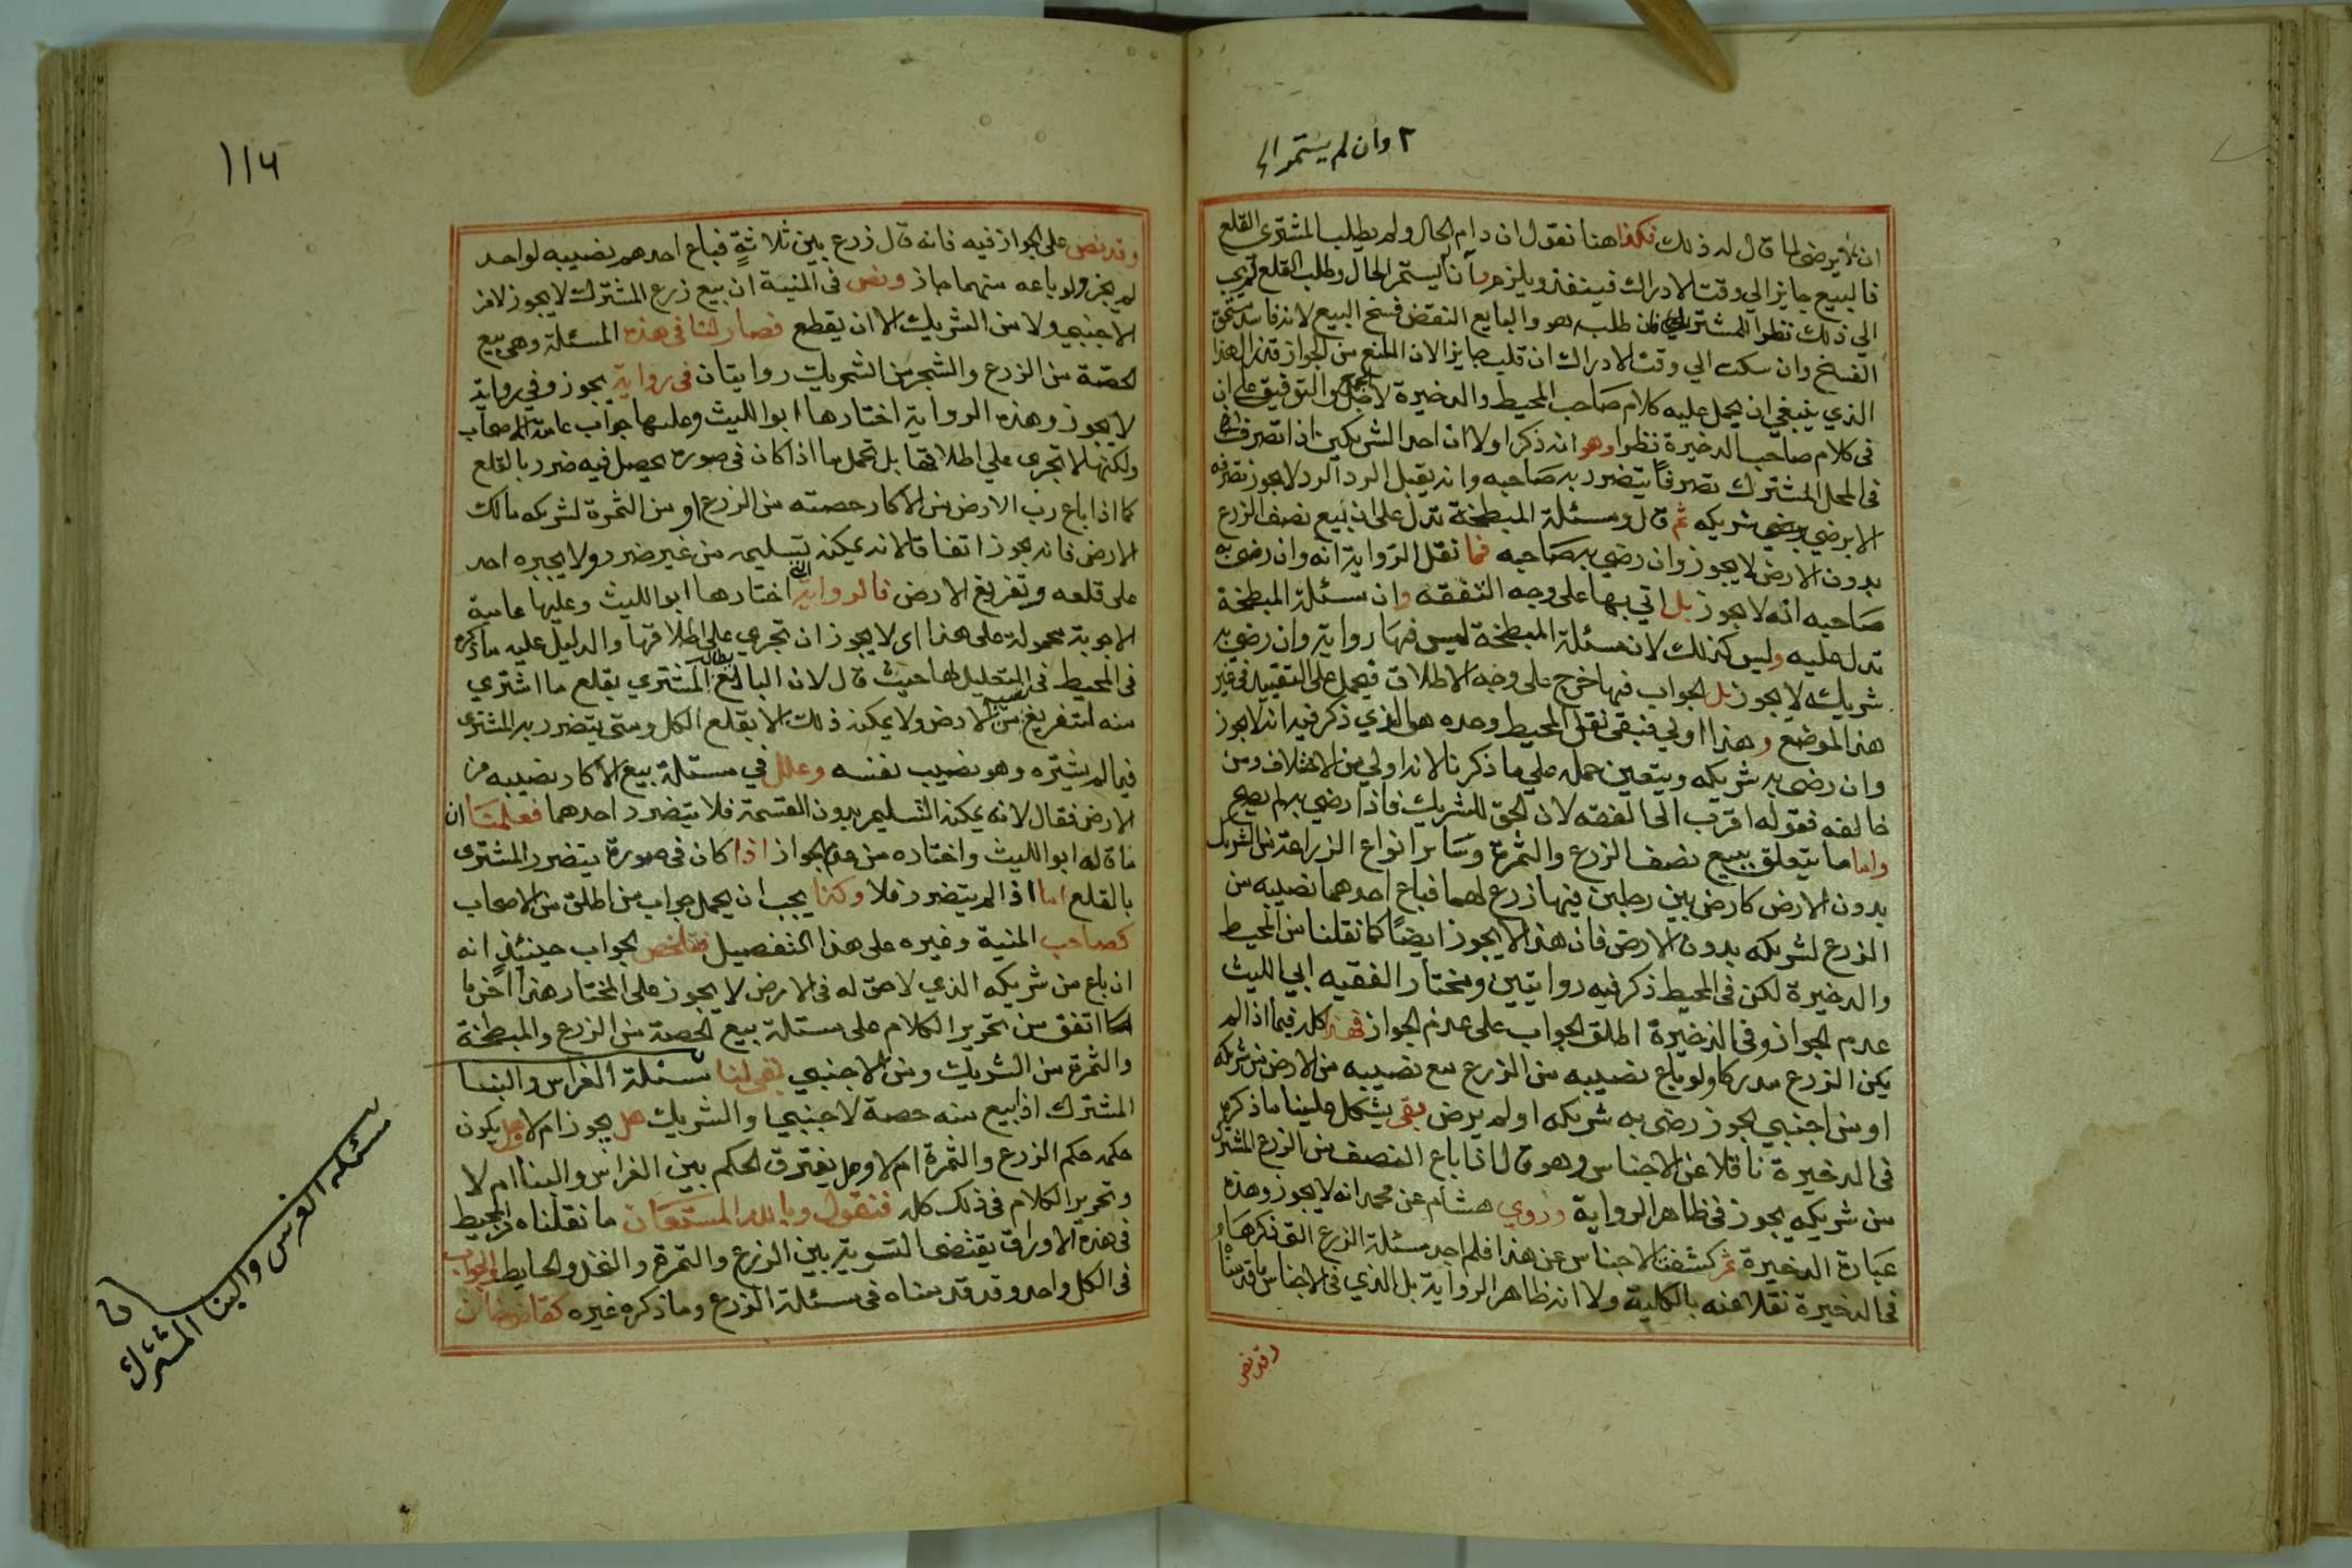 ٢ وان لم يستمر الى
ان لا يرضى لما قال له ذلك فكذا هنا نقول ان دام الحال ولم يطلب المشتري القلع
فالبيع جايز الي وقت الادراك فينفذ ويلزم وان لم يستمر الحال وطلب القلع
الي ذلك نظرا للمشتري فان طلب هو والبايع النقض فسخ البيع لانه فاسد مستحق
الفسخ وان سكت الي وقت الادراك انقلب جايزا لان المانع من الجواز قد زال هذا
الذي ينبغي ان يحمل عليه كلام صاحب المحيط والذخيرة لاجل والتوفيق علي ان
في كلام صاحب الذخيرة نظرا وهو انه ذكر اولا ان احد الشريكين اذا تصرف
في المحل المشترك تصرفا يتضرر به صاحبه وانه يقبل الرد الرد لا يجوز تصرفه
الا برضي شريكه ثم قال ومسئلة المبطخة تدل على ان بيع نصف الزرع
بدون الارض لا يجوز وان رضي به صاحبه فما نقل الرواية انه وان رضى به
صاحبه انه لا يجوز بل اتي بها على وجه التفقه وان مسئلة المبطخة
تدل عليه وليس كذلك لان مسئلة المبطخة ليس فيها رواية وان رضي به
شريكه لا يجوز بل الجواب فيها خرج على وجه الاطلاق فيحمل على التقييد في غير
هذا الموضع وهذا اولي فبقي نقل المحيط وحده هو الذي ذكر فيه انه لا يجوز
وان رضى به شريكه ويتعين حمله علي ما ذكرنا لانه اولي من الاختلاف ومن
خالفه فقوله اقرب الى الفقه لان الحق للشريك فاذا رضي به لم يصح
واما ما يتعلق ببيع نصف الزرع والثمرة وسائر انواع الزراعة من الشريك
بدون الارض كارض بين رجلين فيها زرع لهما فباع احدهما نصيبه من
الزرع لشريكه بدون الارض فان هذا لا يجوز ايضا كما نقلنا من المحيط
والذخيرة لكن في المحيط ذكر فيه روايتين ومختار الفقيه ابي الليث
عدم الجواز وفى الذخيرة اطلق الجواب على عدم الجواز فهذا كله فيما اذا لم
يكن الزرع مدركا ولو باع نصيبه من الزرع مع نصيبه من الارض من شريكه
او من اجنبي يجوز رضى به شريكه او لم يرض بقى يشكل علينا ما ذكره
في الذخيرة ناقلا عن الاجناس وهو قال اذا باع النصف من الزرع المشترك
من شريكه يجوز في ظاهر الرواية وروي هشام عن محمد انه لا يجوز وهذه
عبارة الذخيرة ثم كشفنا الاجناس عن هذا فلم اجد مسئلة الزرع التي ذكرها
في الذخيرة نقلا عنه بالكلية ولا انه ظاهر الرواية بل الذي في الاجناس ما قدمناه
وقد نص
١١٦
وقد نص على الجواز فيه فانه قال زرع بين ثلاثة فباع احدهم نصيبه لواحد
لم يجز ولو باعه منهما جاز ونص فى المنية ان بيع زرع المشترك لا يجوز لا من
الاجنبي ولا من الشريك الا ان يقطع فصار لنا في هذه المسئلة وهي بيع
الحصة من الزرع والشجر من الشريك روايتان فى رواية يجوز وفي رواية
لا يجوز وهذه الرواية اختارها ابو الليث وعليها جواب عامة الاصحاب
ولكنها لا تجرى علي اطلاقها بل تحمل ما اذا كان في صورة يحصل فيه ضرر بالقلع
كما اذا باع رب الارض من الاكار حصته من الزرع او من الثمرة لشريكه مالك
الارض فانه يجوز اتفاقا لانه يمكنه تسليمه من غير ضرر ولا يجبره احد
على قلعه وتفريغ الارض فالرواية التي اختارها ابو الليث وعليها عامة
الاجوبة محمولة على هذا اى لا يجوز ان تجري على اطلاقها والدليل عليه ما ذكره
في المحيط في التحليل لها حيث قال لان البائع يطالب المشتري بقلع ما اشتري
منه لتفريغ نصيبه من الارض ولا يمكنه ذلك الا بقلع الكل ومتى يتضرر به المشتري
فيما لم يشتره وهو نصيب نفسه وعلل في مسئلة بيع الاكار نصيبه من
الارض فقال لانه يمكنه التسليم بدون القسمة فلا يتضرر احدهما فعلمنا ان
ما قاله ابو الليث واختاره من عدم الجواز اذا كان في صورة يتضرر المشتري
بالقلع اما اذا لم يتضرر فلا وكذا يجب ان يحمل جواب من اطلق من الاصحاب
كصاحب المنية وغيره على هذا التفصيل فتلخص الجواب حينئذ انه
ان باع من شريكه الذي لا حق له في الارض لا يجوز على المختار هذا اخر ما
اتفق من تحرير الكلام على مسئلة بيع الحصة من الزرع والمبطخة
والثمرة من الشريك ومن الاجنبي بقي لنا مسئلة الغراس والبنا
المشترك اذا بيع منه حصة لاجنبي او الشريك هل يجوز ام لا وهل يكون
حكمه حكم الزرع والثمرة ام لا وهل يفترق الحكم بين الغراس والبنا ام لا
وتحرير الكلام في ذلك كله فنقول وبالله المستعان ما نقلناه من المحيط
في هذه الاوراق يقتضى التسوية بين الزرع والثمرة والنخل والحايط والجواب
في الكل واحد وقد قدمناه في مسئلة الزرع وما ذكره غيره كقاضي خان
مسئله الغرس والبنا المشترك